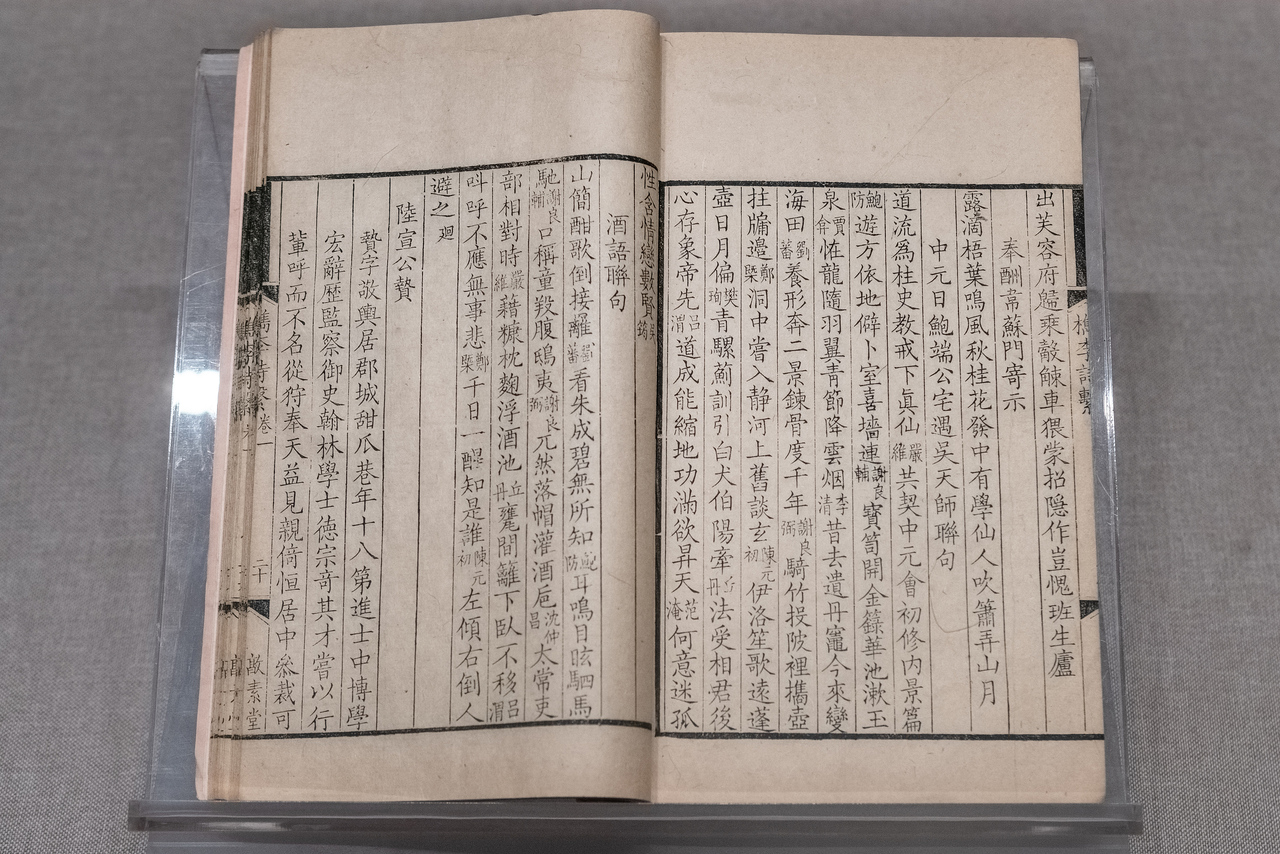 檇李詩繫
出芙容府歸乘觳觫車猥蒙招隱作豈愧班生廬
奉酬韋蘇門寄示
露滴梧葉鳴風秋桂花發中有學仙人吹簫弄山月
中元日鮑端公宅遇吳天師聯句
道流爲柱史教戒下眞仙嚴維共契中元會初修内景篇
鮑防遊方依地僻卜室喜墻連謝良輔寶笥開金籙華池漱玉
泉賈弇恠龍隨羽翼青節降雲烟李清昔去遺丹竈今來變
海田劉蕃養形奔二景鍊骨度千年謝良弼騎竹投陂裡攜壺
拄牖邉鄭槩洞中嘗入静河上舊談玄陳元初伊洛笙歌遠蓬
壺日月偏樊珣青騾薊訓引白犬伯陽牽丘丹法受相君後
心存象帝先呂渭道成能縮地功滿欲昇天范淹何意迷孤
性含情戀數賢吳筠
酒語聯句
山簡酣歌倒接䍦劉蕃看朱成碧無所知鮑防耳鳴目眩駟馬
馳謝良輔口稱童羖腹鴟夷謝良弼兀然落帽灌酒巵沈仲昌太常吏
部相對時嚴維藉糠枕麴浮酒池丘丹甕間籬下臥不移呂渭
呌呼不應無事悲鄭槩千日一醒知是誰陳元初左傾右倒人
避之廻
陸宣公贄
贄字敬輿居郡城甜瓜巷年十八第進士中博學
宏辭歷監察御史翰林學士德宗竒其才嘗以行
輩呼而不名從狩奉天益見親倚恒居中叅裁可
檇李詩繫 卷一 二十 敬素堂